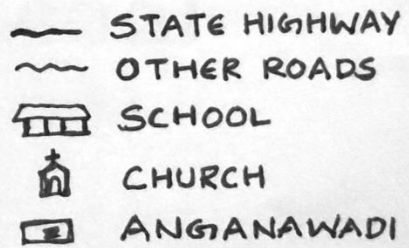 STATE HIGHWAY
OTHER ROADS
SCHOOL
CHURCH
ANGANAWADI